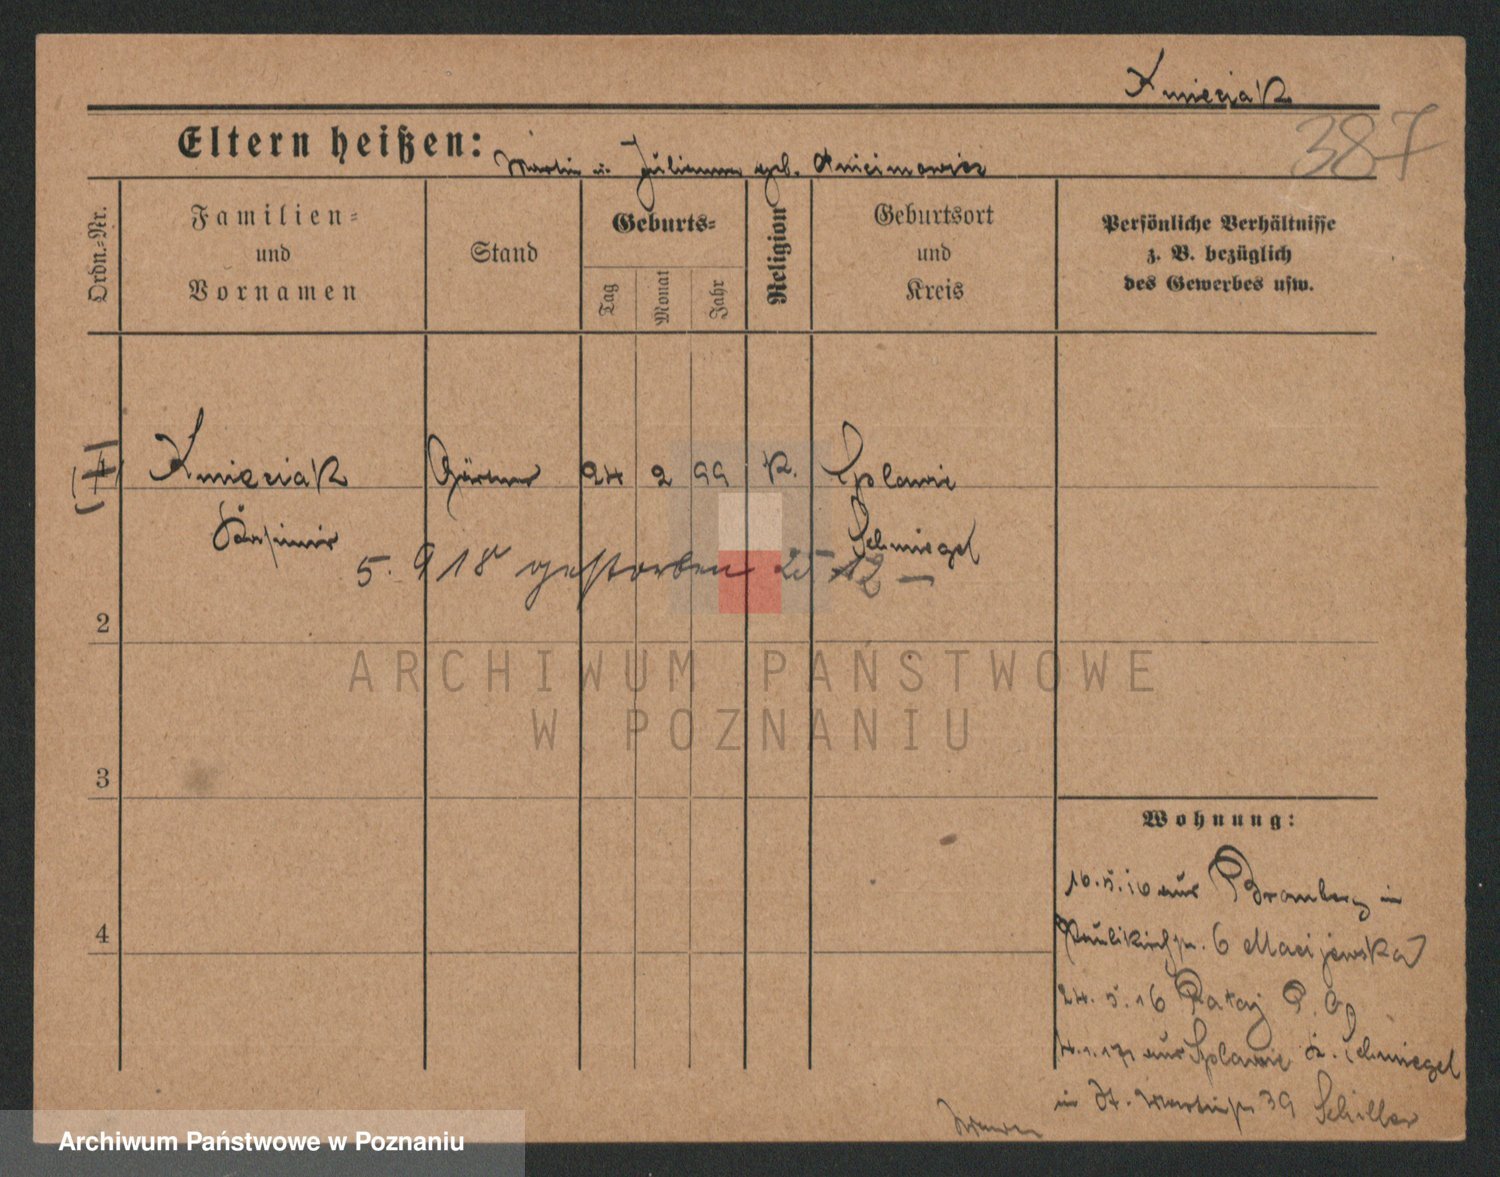 Kmieciak
387
Eltern heißen: Martin u. Julianna geb.
Ordn.-Nr.
Familien-
und
Vornamen
Stand
Geburts-
Tag
Monat
Jahr
Religion
Geburtsort
und
Kreis
Persönliche Verhältnisse
z. B. bezüglich
des Gewerbes usw.
1 Kmieciak Gärtner 24 2 99 K. Splawie
Kasimir Schmiegel
5. 9 18 gestorben 25 12 —
2
ARCHIWUM PAŃSTWOWE
W POZNANIU
3
Wohnung:
16.5.16 aus Bromberg in
Paulikirchstr. 6 Maciejewska
4
24. 5. 16 Rataj
4.1.17 aus Splawie Kr. Schmiegel
in St. Martinstr 39 Schiller
Archiwum Państwowe w Poznaniu